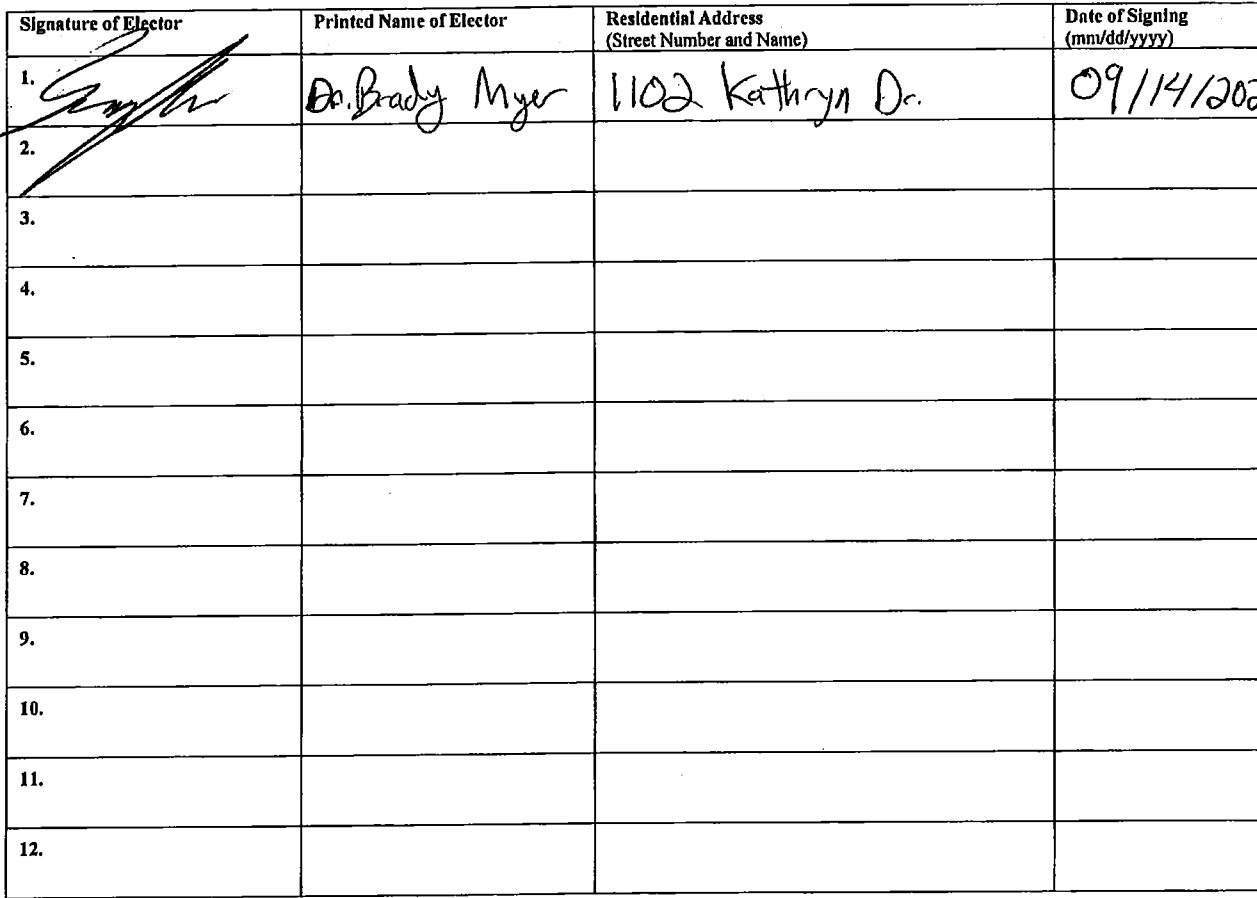 Signature of Elector Printed Name of Elector Residential Address Date of Signing
(Street Number and Name) (mm/dd/yyyy)
1. Dr. Brady Myer 1102 Kathryn Dr. 09/14/202
2.
3.
4.
5.
6.
7.
8.
9.
10.
11.
12.